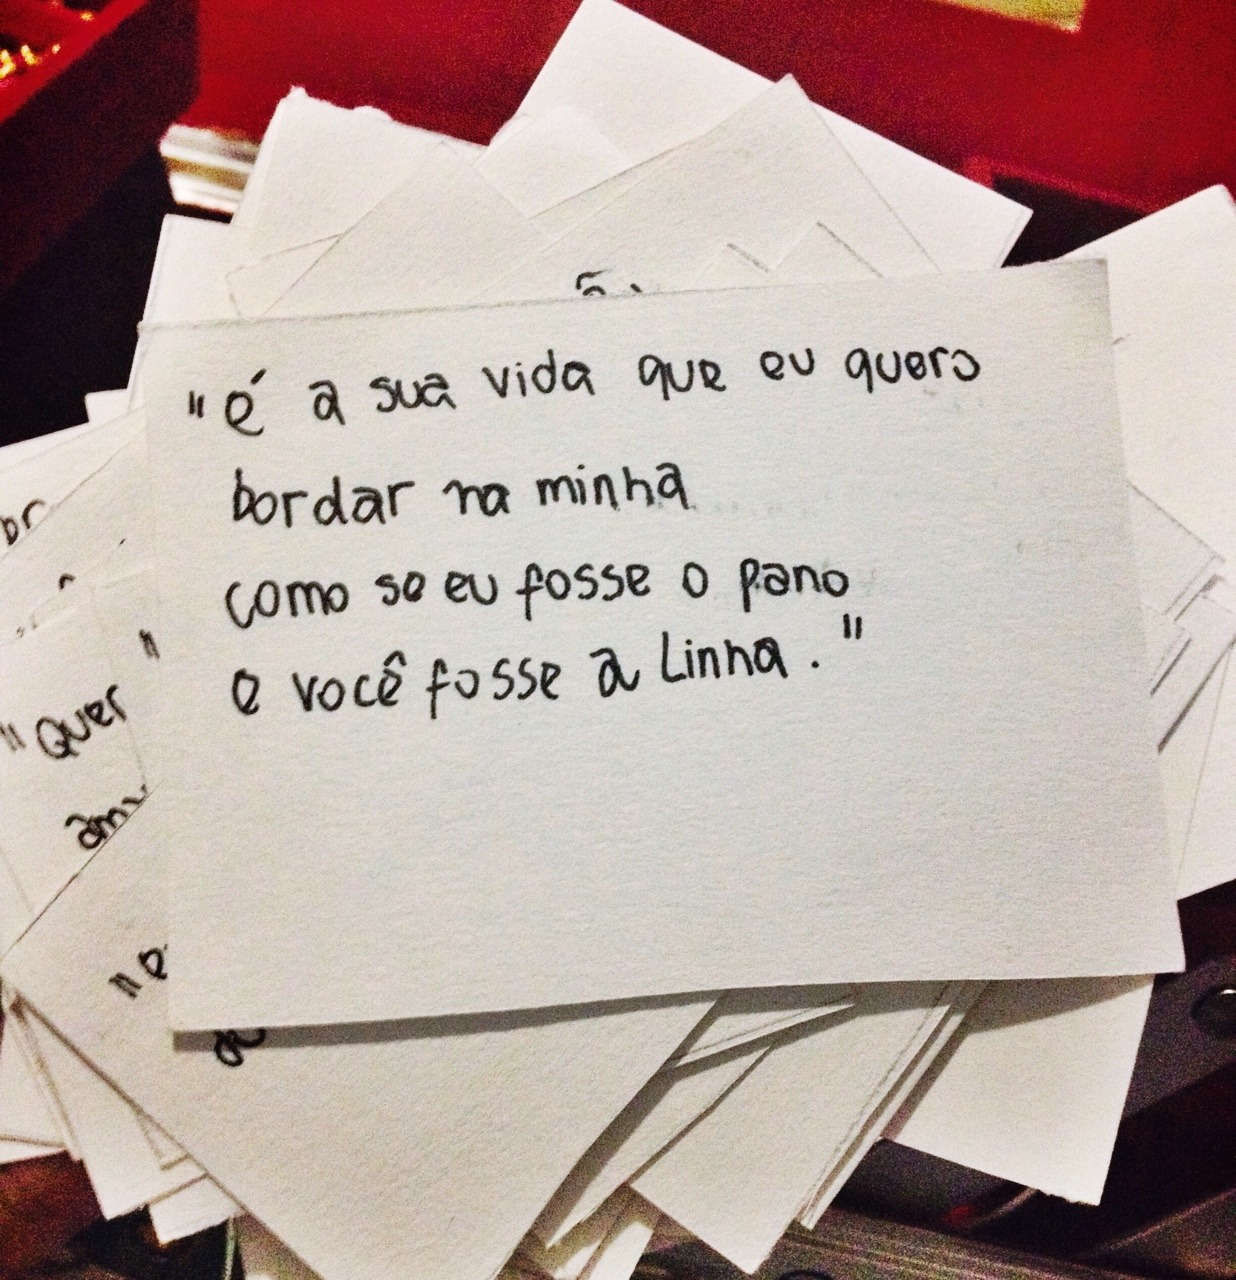 "é a sua vida que eu quero
bordar na minha
como se eu fosse o pano
e você fosse a Linha."
br
"
"Quer
"e